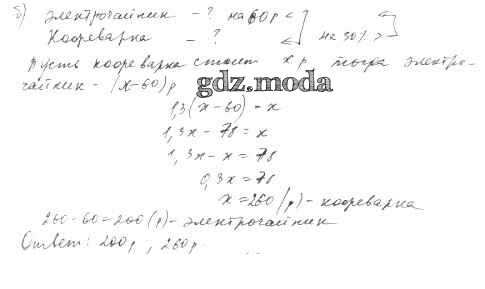 б) электрочайник - ? на 60р <
Кофеварка - ? на 30% >
Пусть кофеварка стоит x р тогда электро-
чайник - (x-60) р
gdz.moda
1,3(x-60) = x
1,3x - 78 = x
1,3x - x = 78
0,3x = 78
x = 260 (р) - кофеварка
260 - 60 = 200 (р) - электрочайник
Ответ: 200р, 260р.